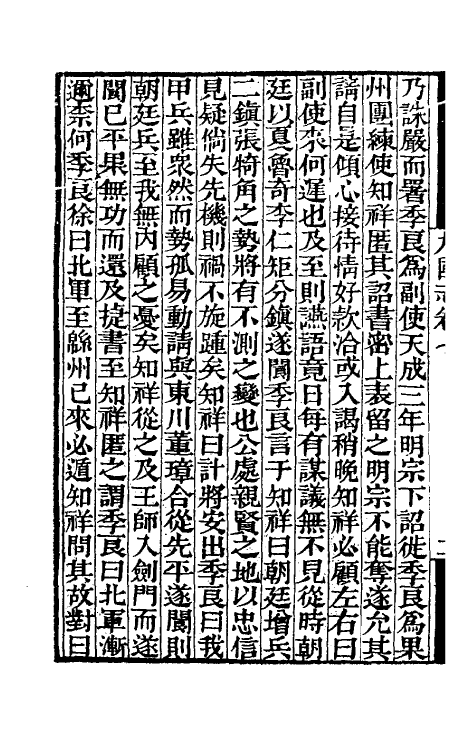 乃誅嚴而署季良為副使天成三年明宗下詔徙季良為果
州團練使知祥匿其詔書密上表留之明宗不能奪遂允其
請自是傾心接待情好款洽或入謁稍晚知祥必顧左右曰
副使來何遲也及至則讌語竟日每有謀議無不見從時朝
廷以夏魯奇李仁矩分鎮遂閬季良言于知祥曰朝廷增兵
二鎮張犄角之勢將有不測之變也公處親賢之地以忠信
見疑倘失先機則禍不旋踵矣知祥曰計將安出季良曰我
甲兵雖衆然而勢孤易動請與東川董璋合從先平遂閬則
朝廷兵至我無內顧之憂矣知祥從之及王師入劍門而遂
閬已平果無功而還及捷書至知祥匿之謂季良曰北軍漸
邇柰何季良徐曰北軍至緜州已來必遁知祥問其故對曰
九國志卷七
二